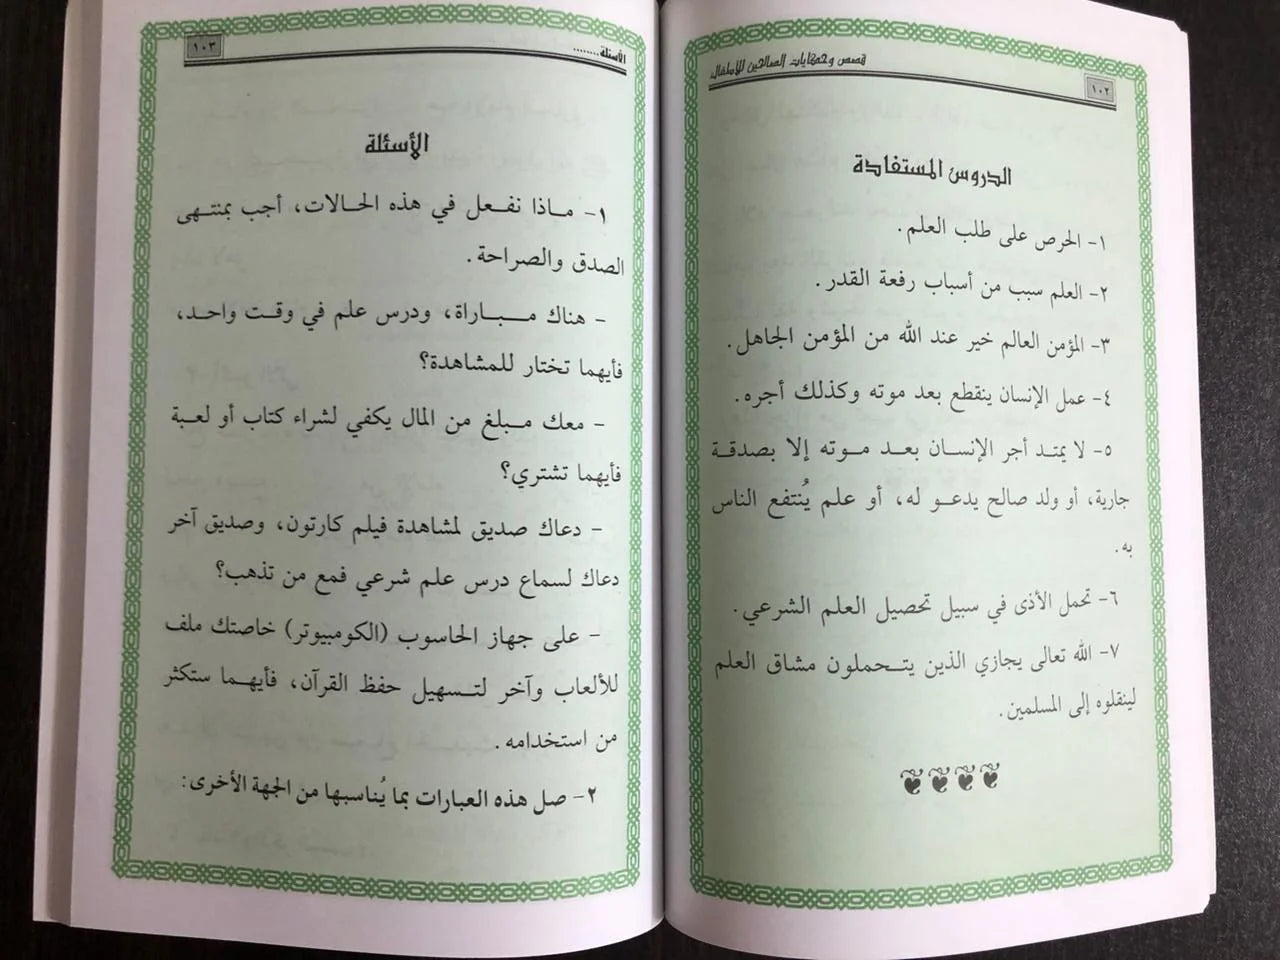 قصص وحكايات الصالحين للأطفال
١٠٢
الدروس المستفادة
١- الحرص على طلب العلم.
٢- العلم سبب من أسباب رفعة القدر.
٣- المؤمن العالم خير عند الله من المؤمن الجاهل.
٤- عمل الإنسان ينقطع بعد موته وكذلك أجره.
٥- لا يمتد أجر الإنسان بعد موته إلا بصدقة
جارية، أو ولد صالح يدعو له، أو علم يُنتفع الناس
به.
٦- تحمل الأذى في سبيل تحصيل العلم الشرعي.
٧- الله تعالى يجازي الذين يتحملون مشاق العلم
لينقلوه إلى المسلمين.
الأسئلة........
١٠٣
الأسئلة
١- ماذا نفعل في هذه الحالات، أجب بمنتهى
الصدق والصراحة.
- هناك مباراة، ودرس علم في وقت واحد،
فأيهما تختار للمشاهدة؟
- معك مبلغ من المال يكفي لشراء كتاب أو لعبة
فأيهما تشتري؟
- دعاك صديق لمشاهدة فيلم كارتون، وصديق آخر
دعاك لسماع درس علم شرعي فمع من تذهب؟
- على جهاز الحاسوب (الكومبيوتر) خاصتك ملف
للألعاب وآخر لتسهيل حفظ القرآن، فأيهما ستكثر
من استخدامه.
٢- صل هذه العبارات بما يُناسبها من الجهة الأخرى: